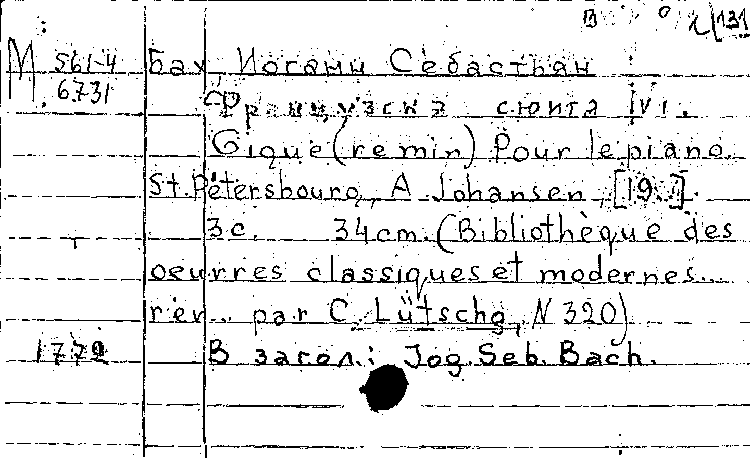 В
M 561-4 Бах, Иоганн Себастьян
6731 Французская сюита IV.
Gique (re min) Pour le piano.
St. Pétersbourg, A Johansen, [19 ].
3с. 34cm. (Bibliothèque des
oeuvres classiques et modernes...
rev... par C. Lütschg, N 320)
В загол.: Jog. Seb. Bach.